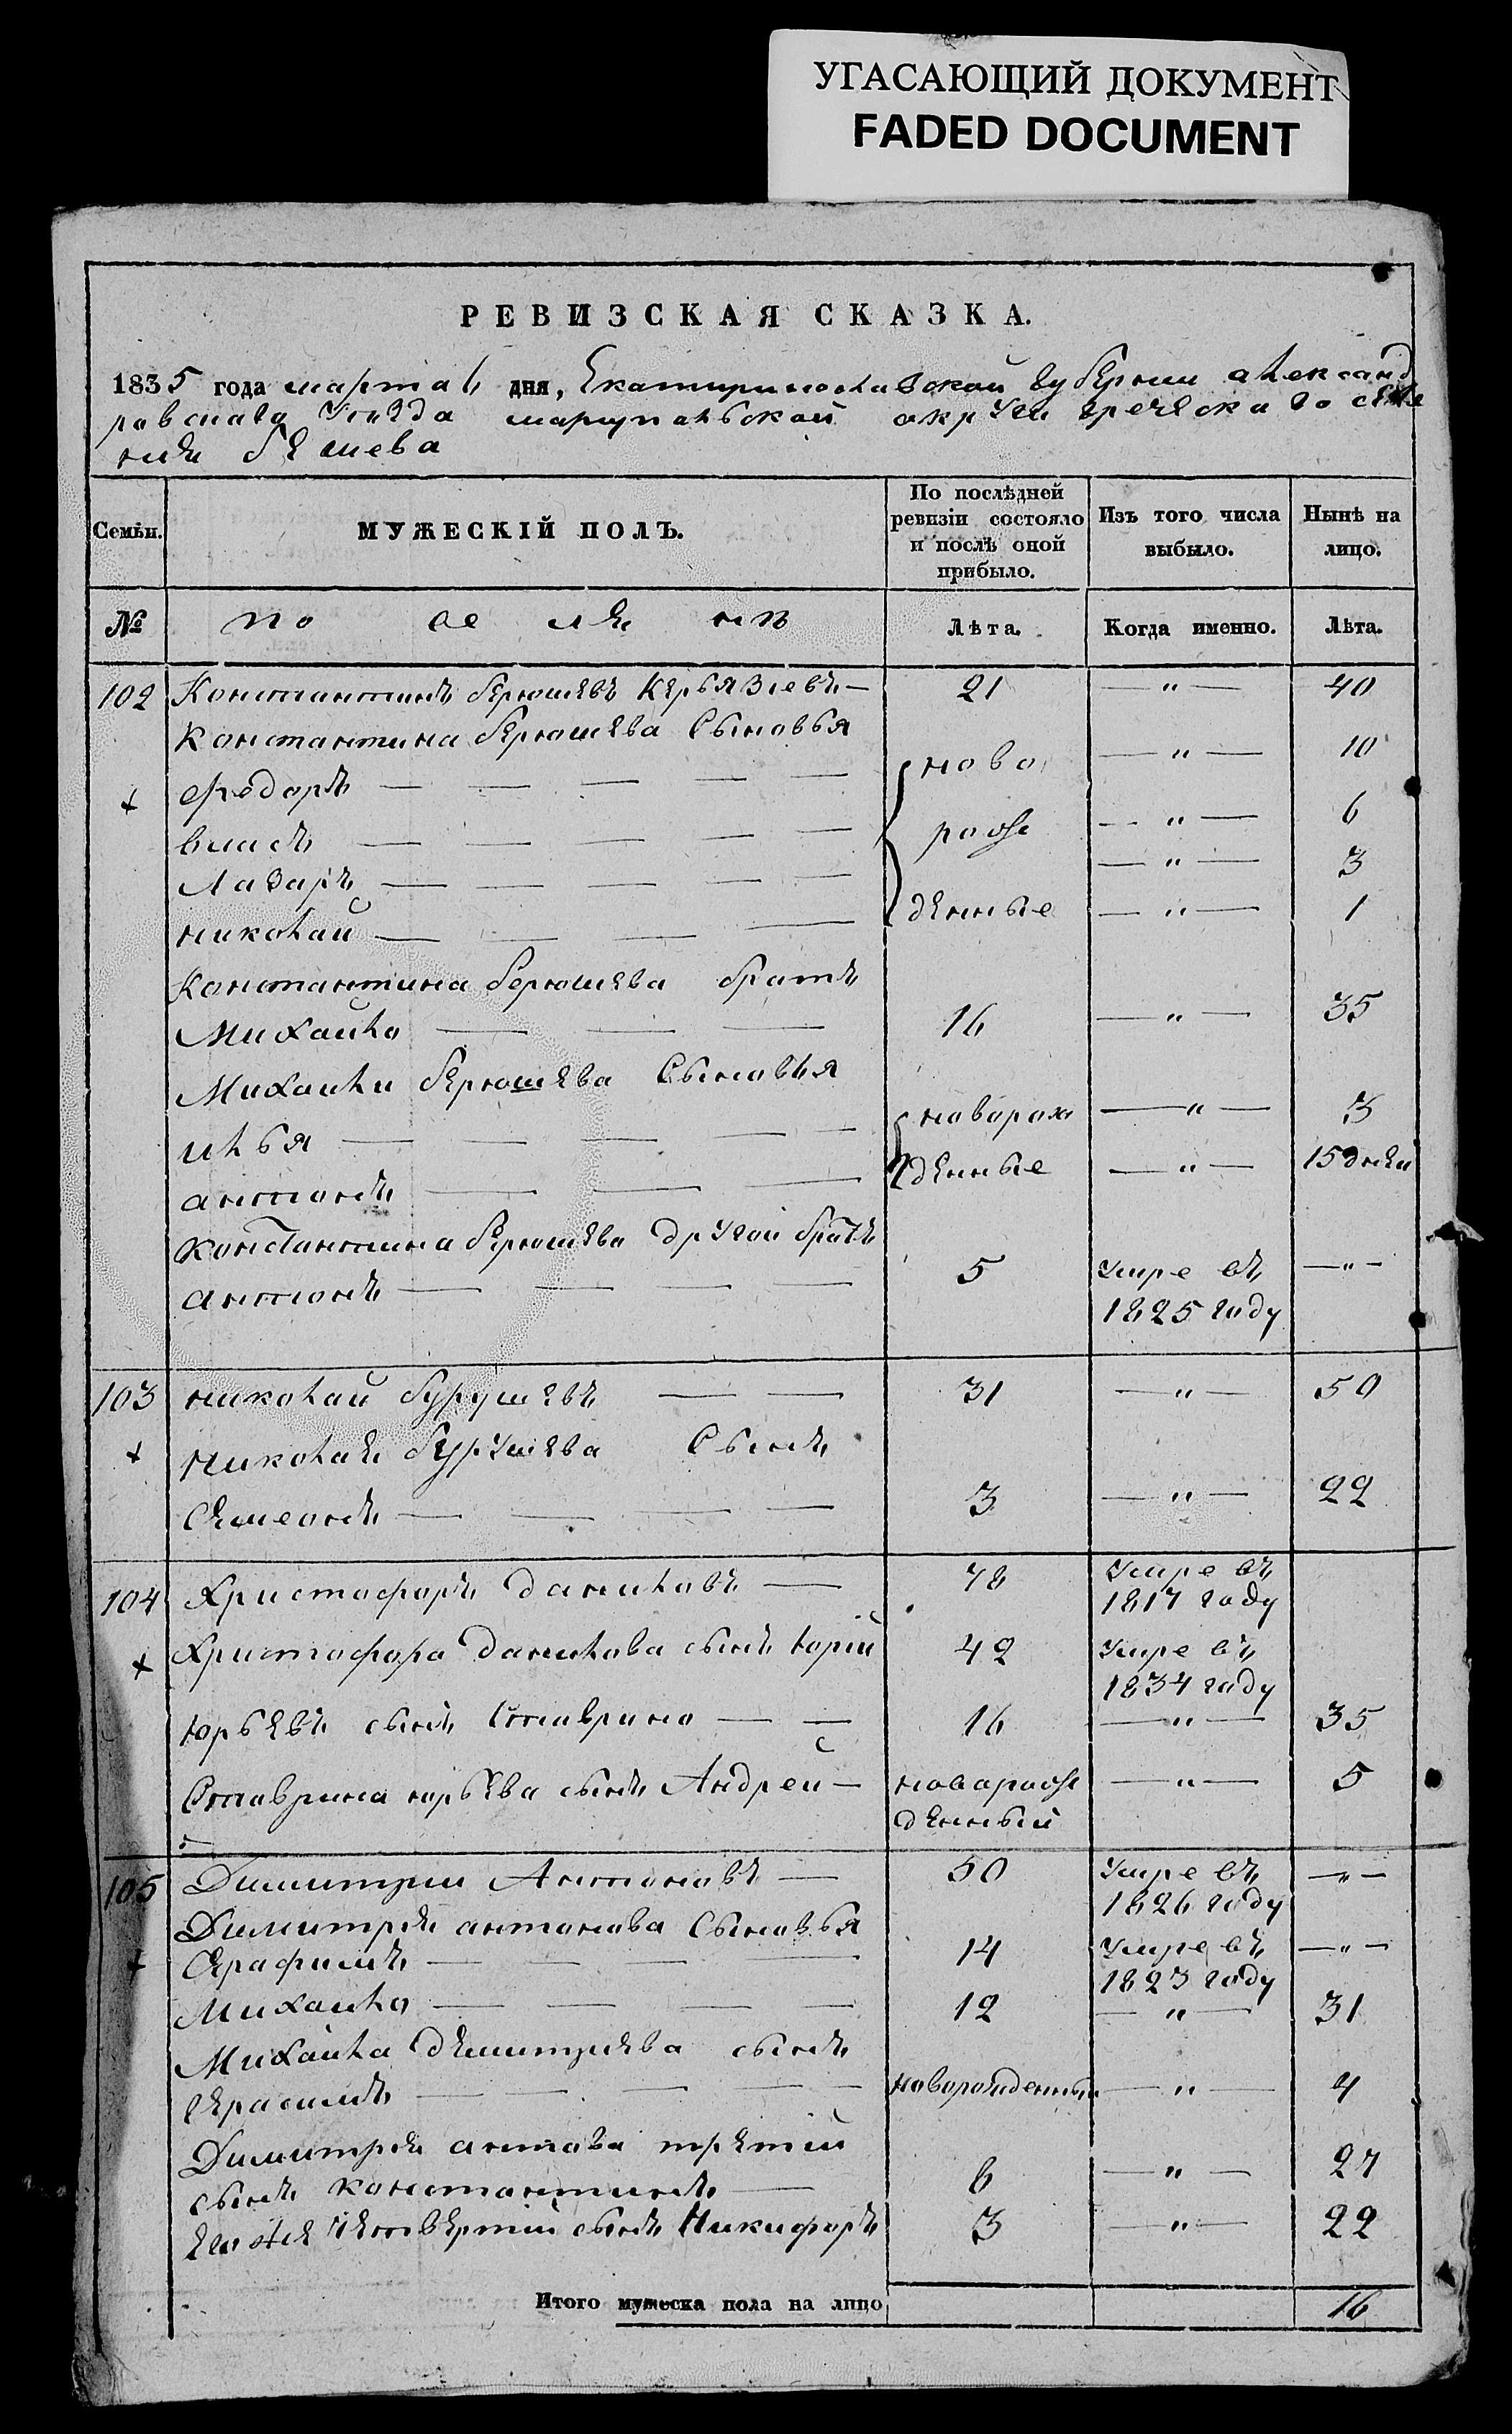 УГАСАЮЩИЙ ДОКУМЕНТ
FADED DOCUMENT
РЕВИЗСКАЯ СКАЗКА.
1835 года марта 6 дня, Екатиринославской губернии александ
ровскаго уезда мариупальской округи греческаго селе
ния бешева
Семьи.
МУЖЕСКІЙ ПОЛЪ.
По послѣдней ревизіи состояло и послѣ оной прибыло.
Изъ того числа выбыло.
Нынѣ на лицо.
№ поселянъ Лѣта. Когда именно. Лѣта.
102 Константинъ берюшевъ Керьязиевъ — 21 — " — 40
Константина берюшева Сыновья
федоръ — — — — — ново — " — 10
власъ — — — — — рож — " — 6
Лазарь — — — — — — " — 3
николай — — — — денные — " — 1
Константина берюшева братъ
Михайло — — — 16 — " — 35
Михайли берюшева Сыновья
илья — — — — — новорож — " — 3
антонъ — — — денные — " — 15 дней
константина берюшева другой братъ
антонъ — — — — 5 умре въ — " —
1825 году
103 николай бурушевъ — — 31 — " — 50
+ николая бурушева Сынъ
Семеонъ — — — — 3 — " — 22
104 Христофоръ даниловъ — 78 Умре въ
1817 году
+ Христофора данилова сынъ юрій 42 Умре въ
1834 году
юрьевъ сынъ Ставрино — — 16 — " — 35
Ставрина юрьева сынъ Андрей — новорож — " — 5
денный
105 Димитрии Антоновъ — 50 Умре въ — " —
1826 году
Димитрия антонова Сыновья
+ Серафимъ — — — — 14 Умре въ — " —
1823 году
Михайло — — — — 12 — " — 31
Михайла демитриева сынъ
герасимъ — — — — новорожденный — " — 4
Димитрия антова третий
сынъ константинъ — 8 — " — 27
его же четвертий сынъ Никифоръ 3 — " — 22
Итого мужеска пола на лицо 16